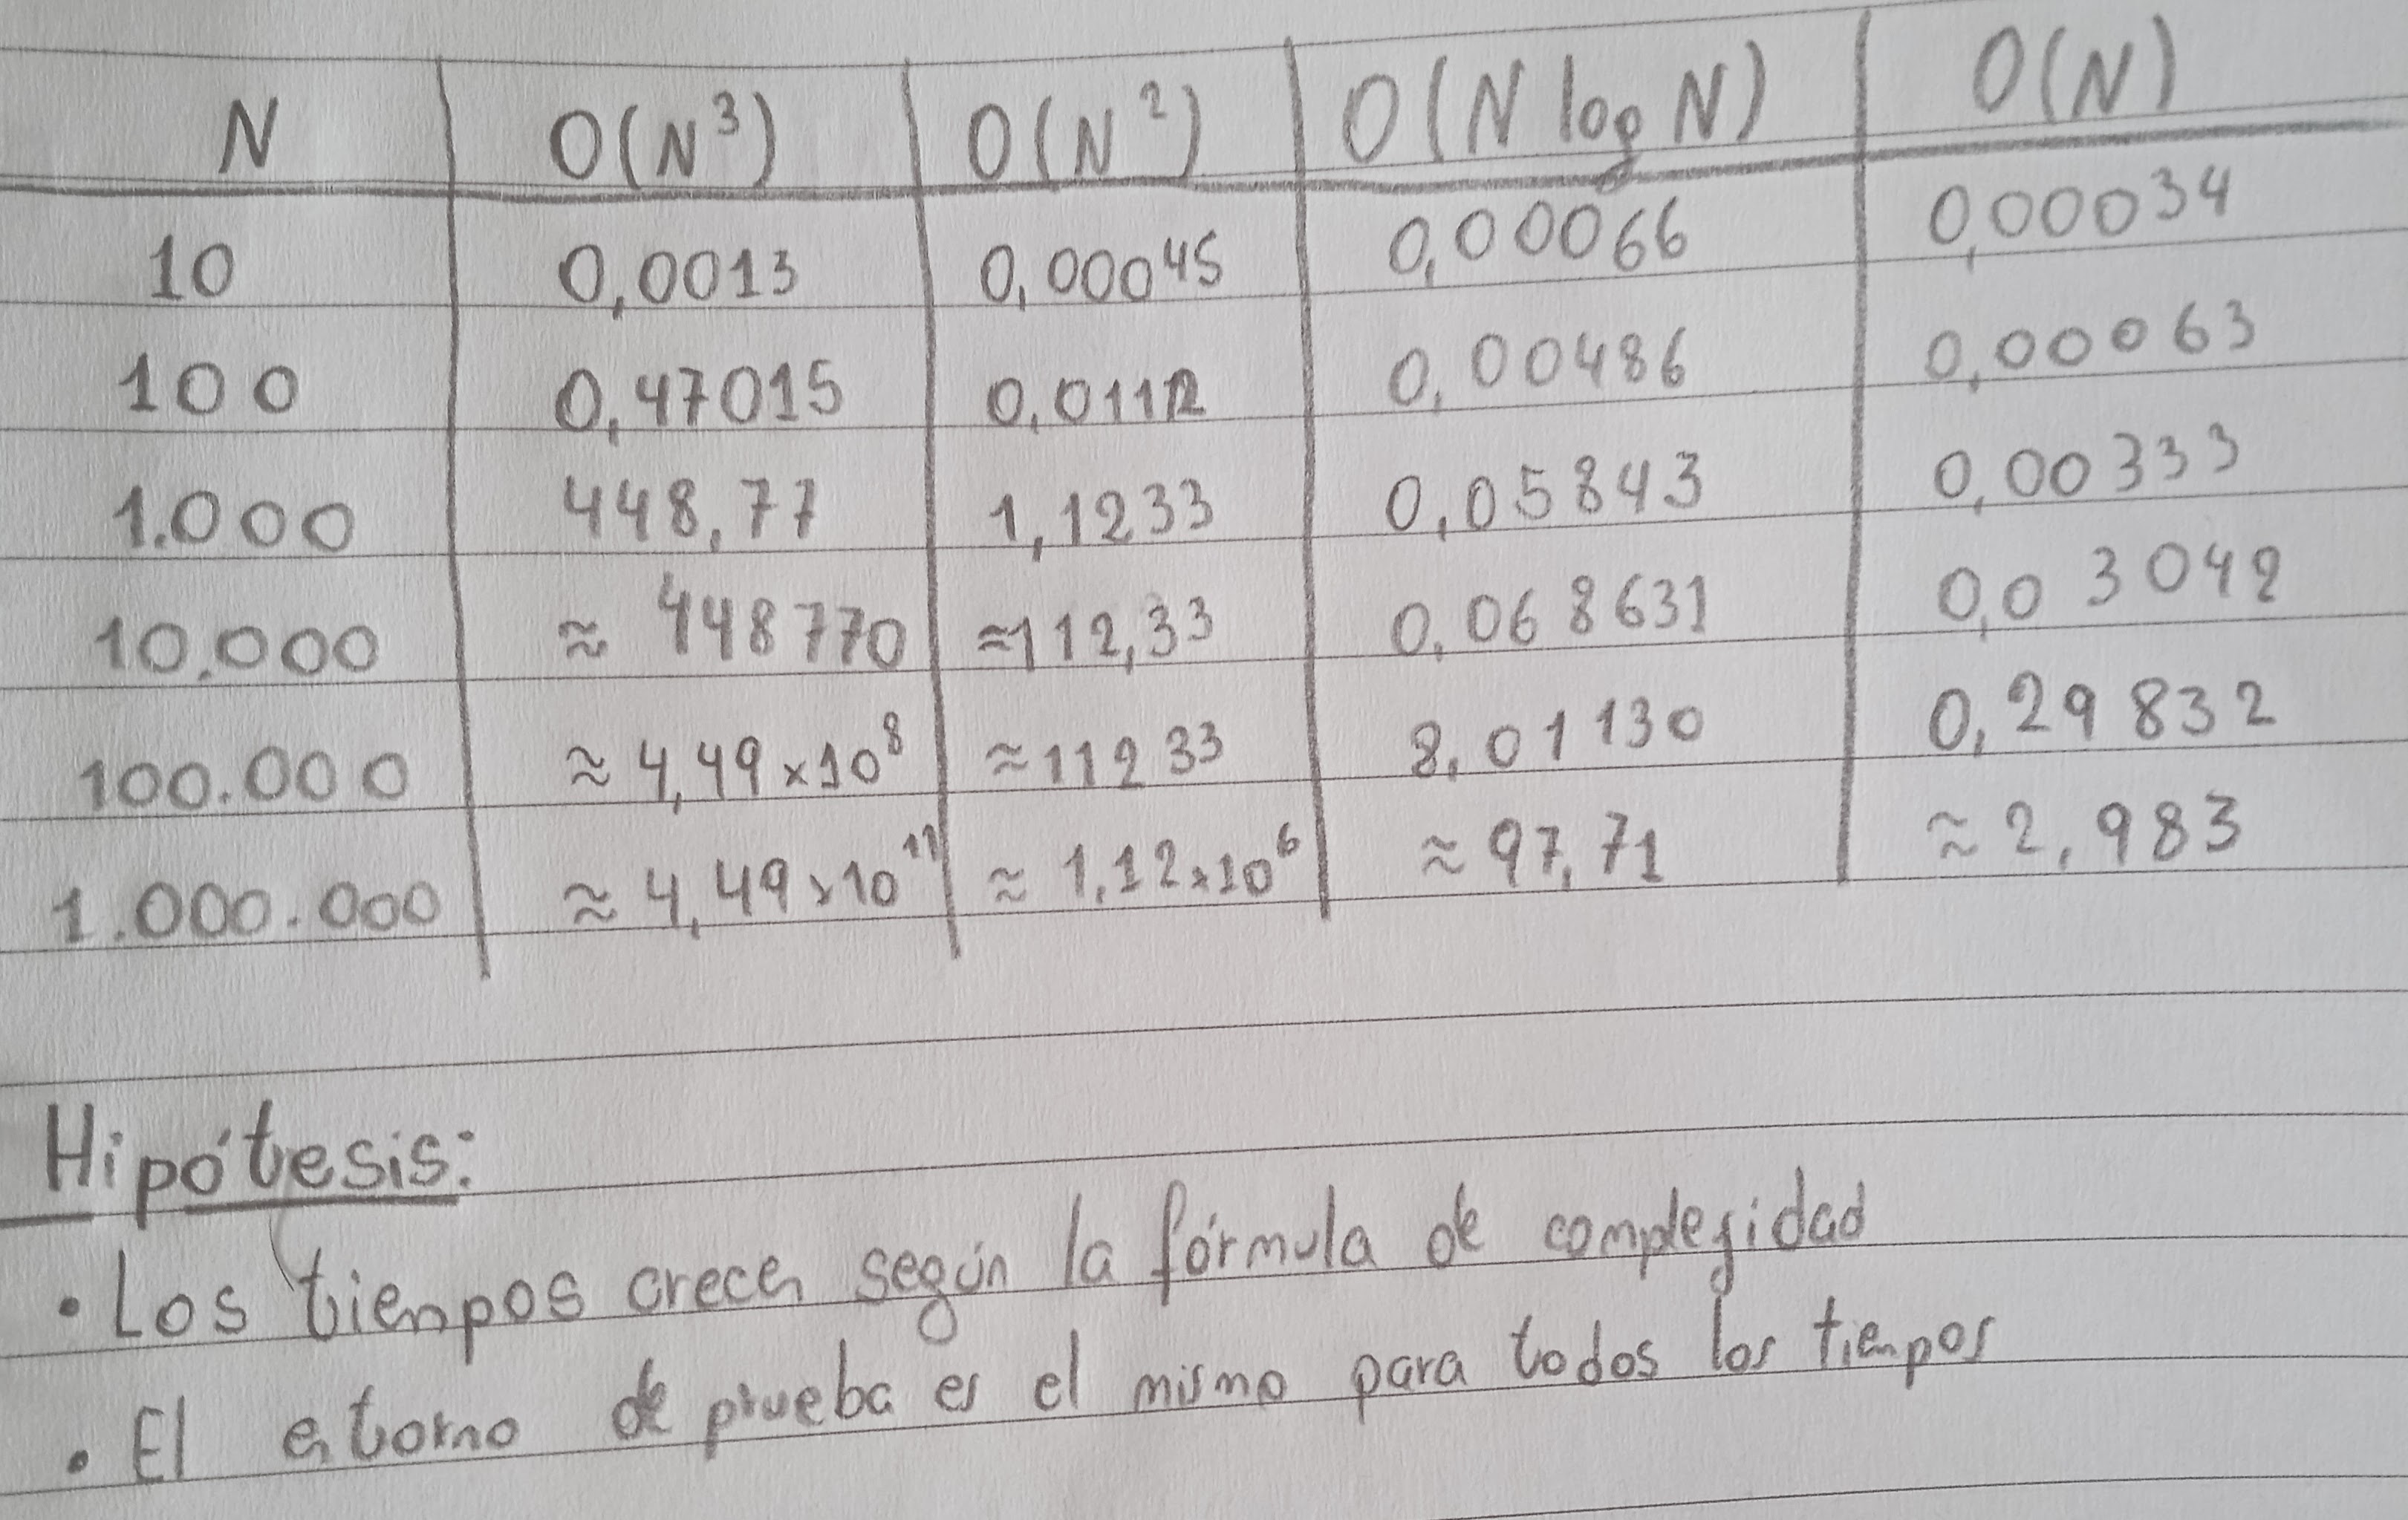 N O(N³) O(N²) O(N log N) O(N)
10 0,0013 0,00045 0,00066 0,00034
100 0,47015 0,0112 0,00486 0,00063
1.000 448,77 1,1233 0,05843 0,00333
10.000 ≈ 448770 ≈112,33 0,068631 0,03042
100.000 ≈ 4,49×10⁸ ≈11233 8,01130 0,29832
1.000.000 ≈ 4,49×10¹¹ ≈ 1,12×10⁶ ≈ 97,71 ≈ 2,983
Hipótesis:
• Los tiempos crecen según la fórmula de complejidad
• El entorno de prueba es el mismo para todos los tiempos